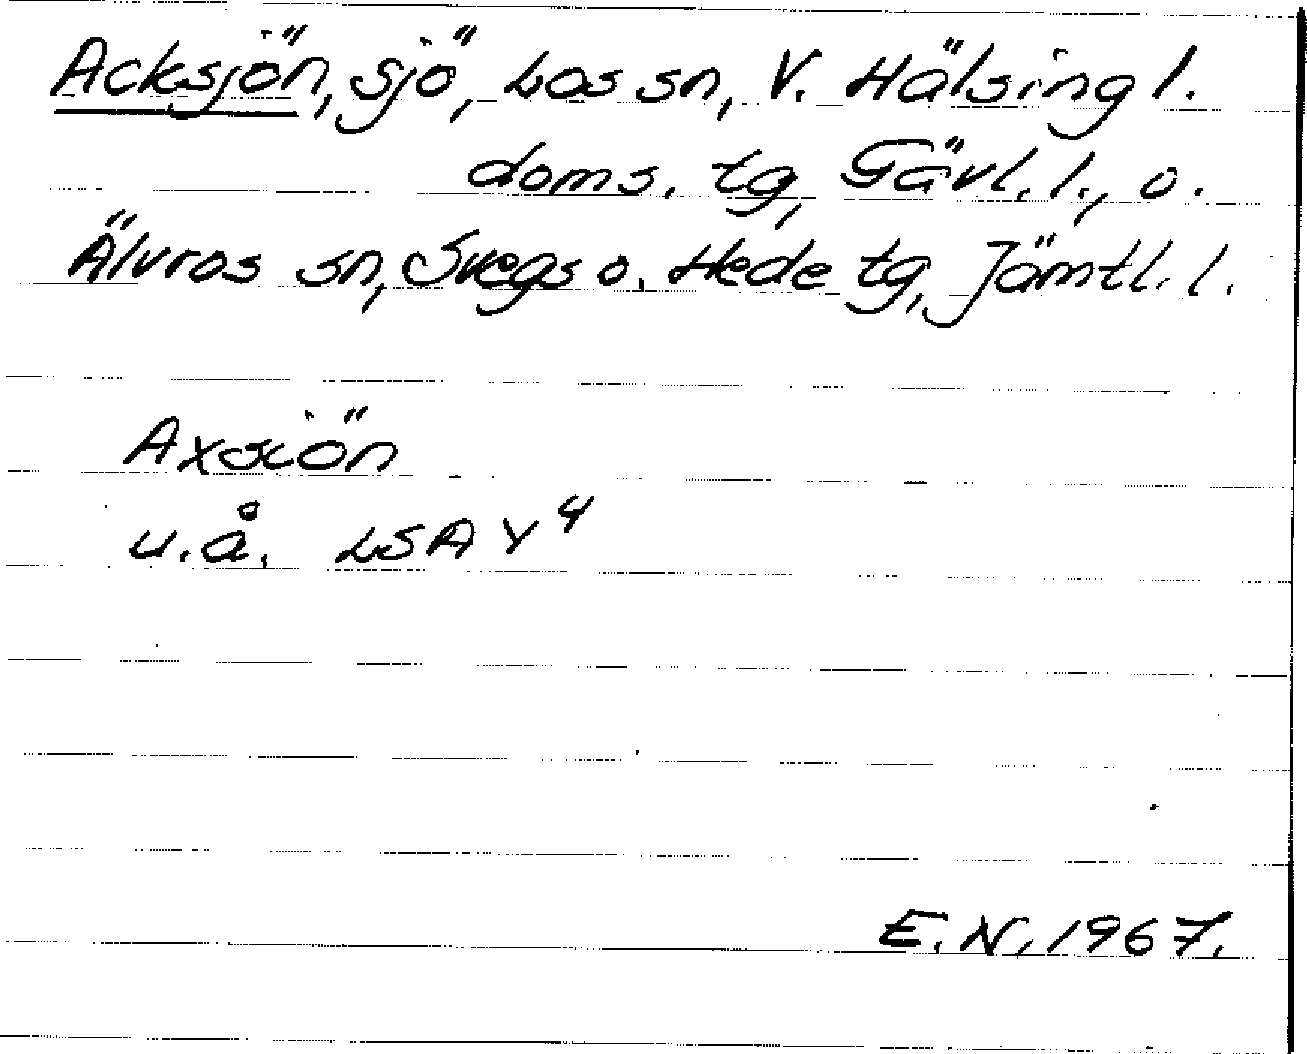 Acksjön, sjö, Los sn, V. Hälsingl.
doms. tg, Gävl. l., o.
Älvros sn, Svegs o. Hede tg, Jämtl. l.
Axsiön
u.å. LSA Y⁴
E.N. 1967.